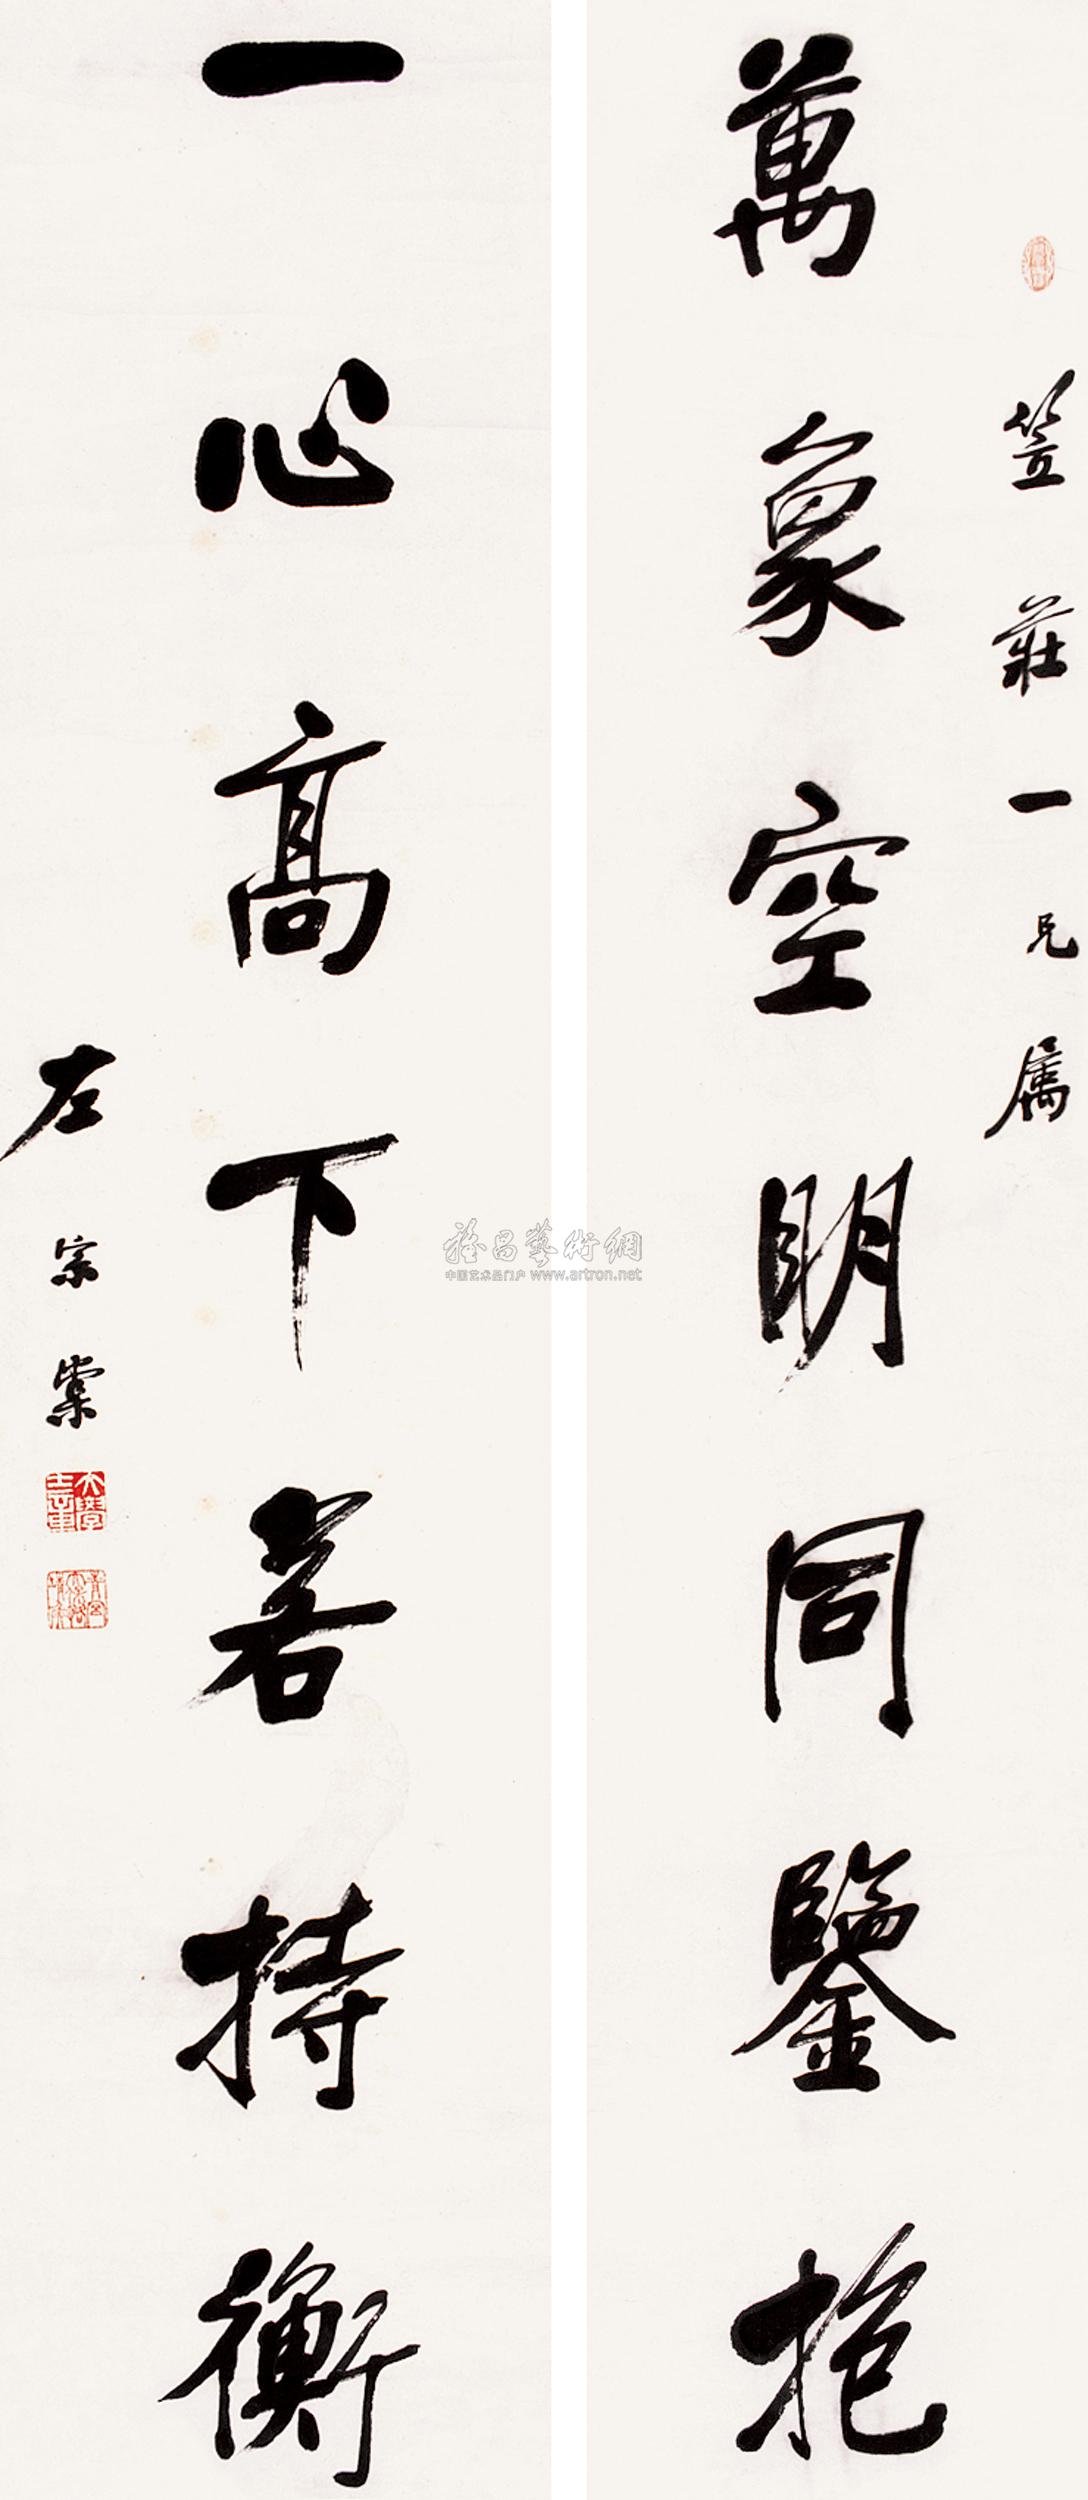 笠莊一兄属
萬象空明同鑒抱
一心高下若持衡
左宗棠
雅昌藝術網
中国艺术品门户 www.artron.net